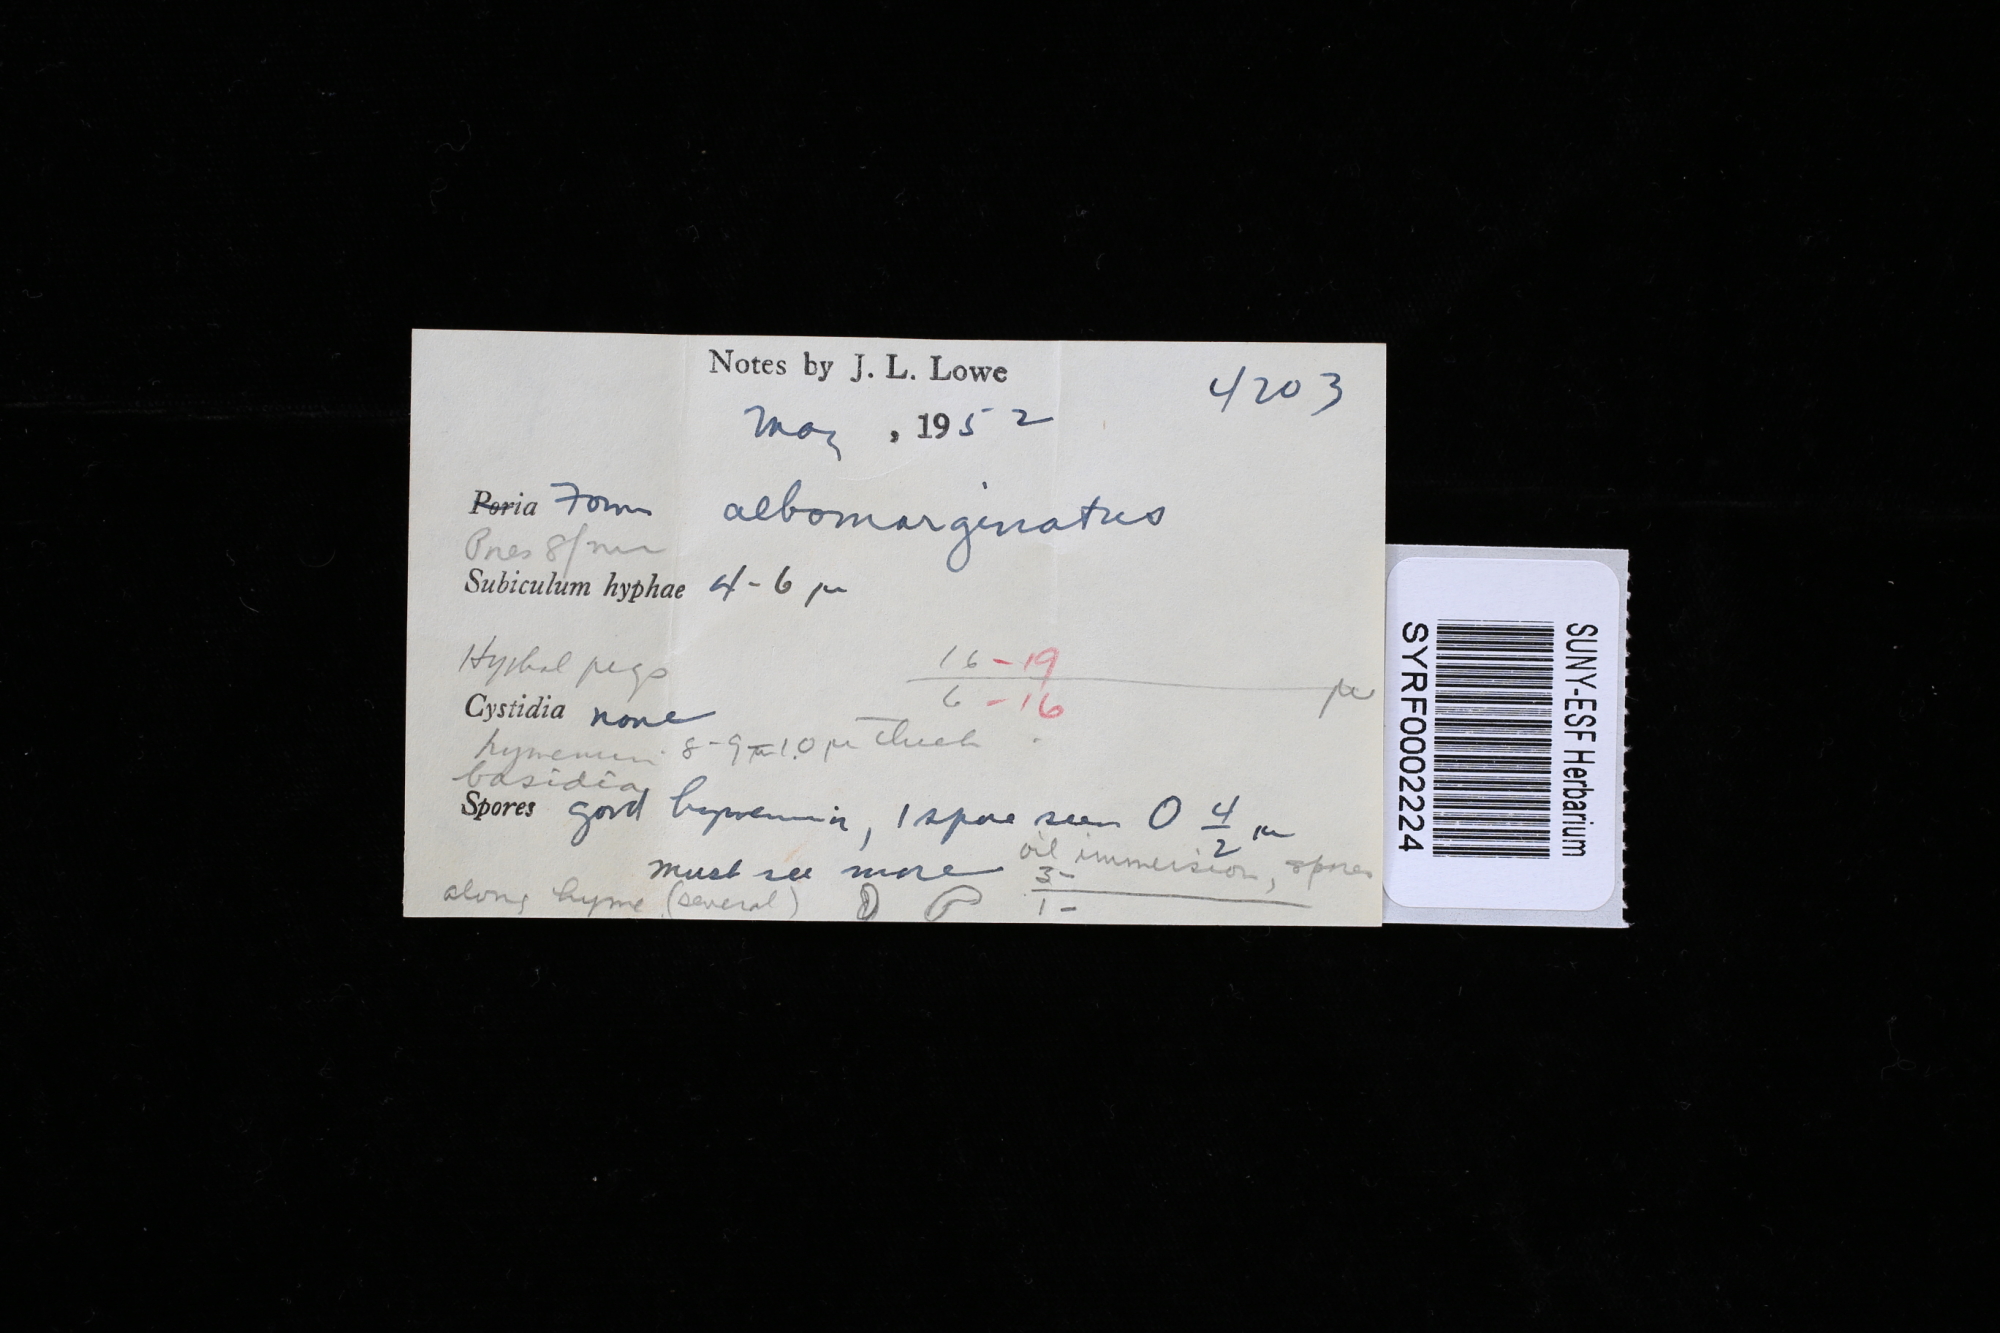 Notes by J. L. Lowe
4203
May, 1952
Poria Fomes albomarginatus
Pores 8/mm
Subiculum hyphae 4-6 μ
Hyphal pegs
16-19
6-16 μ
Cystidia none
hymenium 8-9-10 μ thick
basidia
Spores good hymenium, 1 spore seen 0 4/2 μ
must see more oil immersion, spores
along hyme (several) 3-
1-
SUNY-ESF Herbarium
SYRF0002224